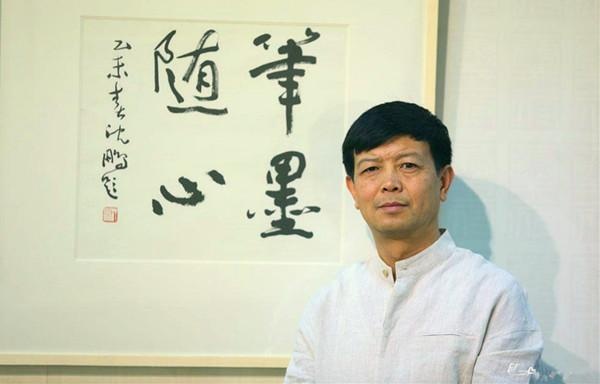 筆墨
随心
乙未春沈鹏题